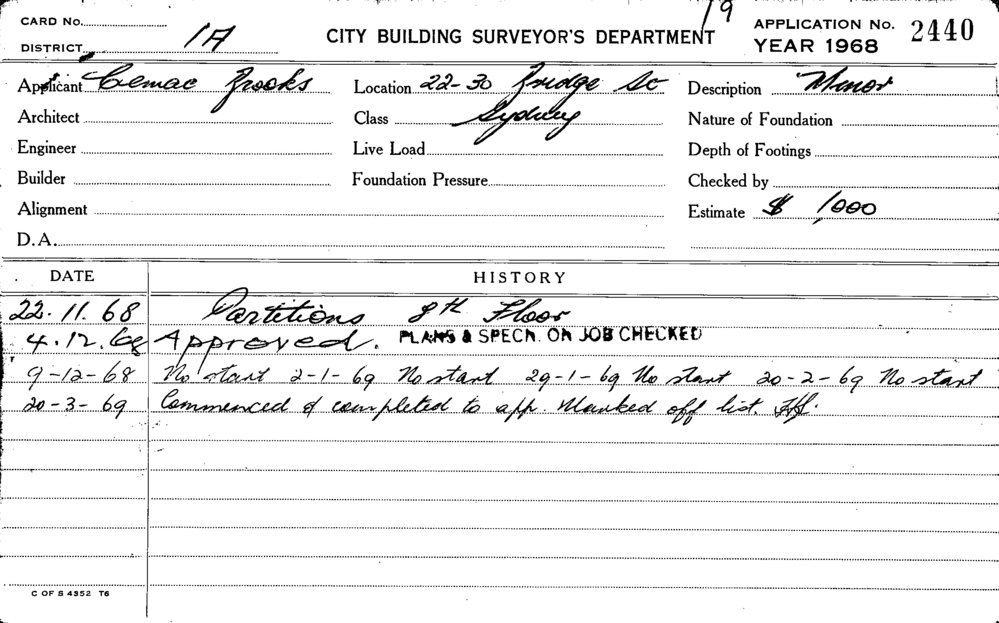 19
CARD No.
APPLICATION No. 2440
DISTRICT 1A
CITY BUILDING SURVEYOR'S DEPARTMENT
YEAR 1968
Applicant Cemac Brooks Location 22-30 Bridge St Description Minor
Architect Class Sydney Nature of Foundation
Engineer Live Load Depth of Footings
Builder Foundation Pressure Checked by
Alignment Estimate $ 1,000
D.A.
DATE HISTORY
22.11.68 Partitions 8th Floor
4.12.68 Approved. PLANS & SPECN. ON JOB CHECKED
9-12-68 No start 2-1-69 No start 29-1-69 No start 20-2-69 No start
20-3-69 Commenced & completed to app. Marked off list.
C OF S 4352 T6